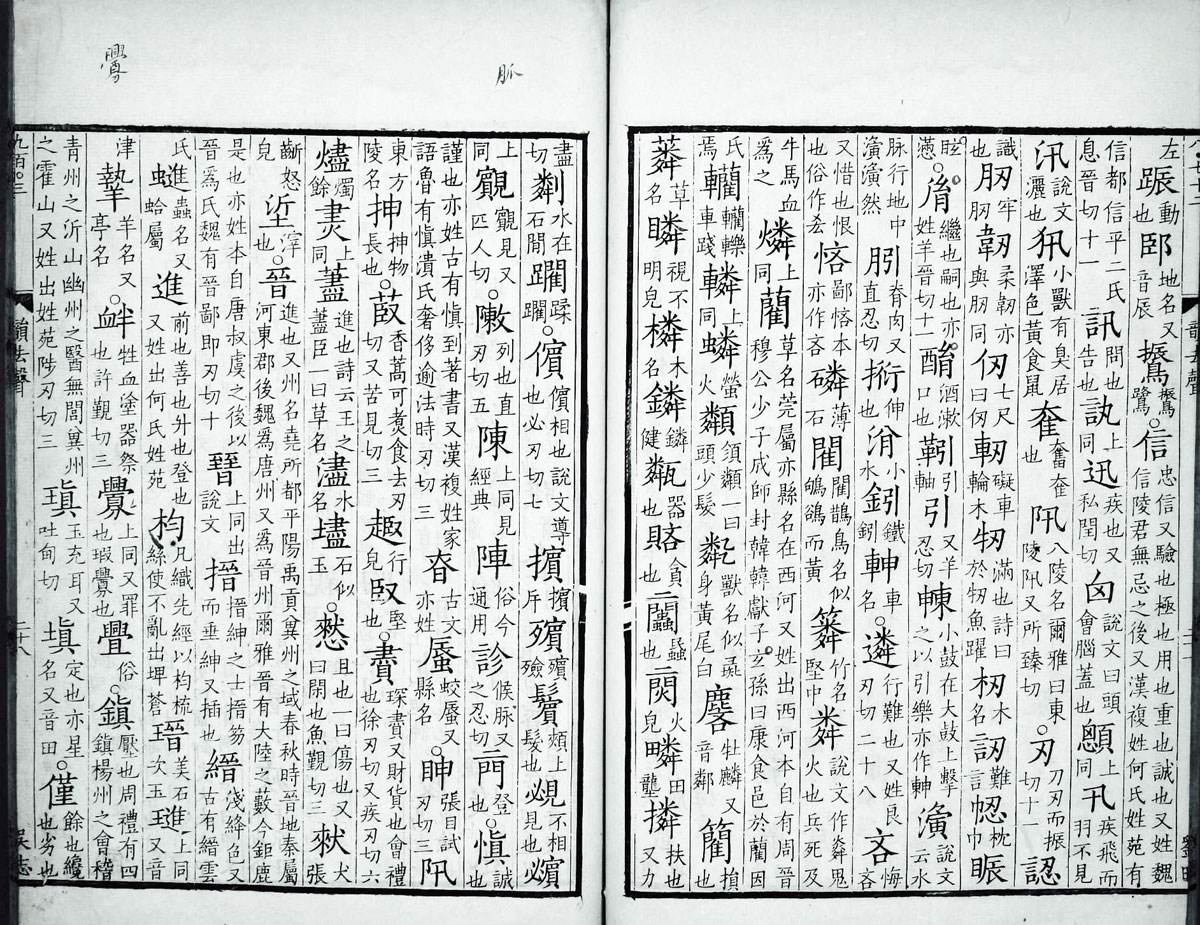 左動也地名又音辰振鷺○信忠信又驗也極也用也重也誠也又姓魏信陵君無忌之後又漢複姓何氏姓苑有
信都信平二氏息晉切十一訊問也告也上同迅疾也又私閏切囟說文曰頭會腦蓋也顖上同卂疾飛而羽不見
汛說文灑也小獸有臭居澤色黃食鼠奞奮奞也阠八陵名爾雅曰東陵阠又所臻切○刃刀刃而振切十一認
識也肕牢肕韌柔韌亦與肕同仞七尺曰仞軔礙車輪木牣滿也詩曰於牣魚躍杒木名訒難言枕巾
眩懣○胤繼也嗣也亦姓羊晉切十一酳酒漱口也靷引軸引又羊忍切小鼓在大鼓上擊之以引樂亦作濥說文云水
脈行地中濥濥然脊肉又直忍切伸也小水鈏鐵鈏車名○遴行難也又姓良刃切二十八吝悔吝
又惜也恨也俗作悋鄙悋本亦作吝磷薄石閵閵鵲鳥名似鴝鵒而黃竹名堅中說文作鬼火也兵死及
牛馬血為之燐上同藺草名莞屬亦縣名在西河又姓出西河本自有周晉穆公少子成師封韓韓獻子玄孫曰康食邑於藺因
氏焉轥轥轢車踐轔上同螢火一曰頭少髮獸名似彘身黃尾白麐牡麟又音鄰損也
草名瞵視不明皃橉木名鏻鏻健甐器也貪也火皃疄田壟撛扶也又力
盡切粼水在石間躙蹂躙○儐儐相也說文導也必刃切七擯擯斥殯殯殮鬢頰上髮也覕不相見也
上同覾見又匹人切○敶列也直刃切五陳上同見經典陣俗今通用診候脈又之忍切登也○慎誠
謹也亦姓古有慎到著書又漢複姓家語魯有慎潰氏奢侈逾法時刃切三昚古文亦姓蜃蛟蜃又縣名○眒張目試刃切三阠
東方陵名抻抻物長也○菣香蒿可煮食去刃切又苦見切三行皃臤堅也○賮琛賮又財貨也會禮也徐刃切又疾刃切六
燼燭餘㶳上同藎進也詩云王之藎臣一曰草名濜水名璶石似玉○憖且也一曰傷也又曰閑也魚覲切三猌犬張
齗怒皃垽滓也○晉進也又州名堯所都平陽禹貢冀州之域春秋時晉地秦屬河東郡後魏為唐州又為晉州爾雅晉有大陸之藪今鉅鹿
是也亦姓本自唐叔虞之後以晉為氏魏有晉鄙即刃切十㬜上同出說文搢搢紳之士搢笏而垂紳又插也縉淺絳色又古有縉雲
氏蟲名又蛤屬進前也善也升也登也又姓出何氏姓苑枃凡織先經以枃梳絲使不亂出埤蒼瑨美石次玉璡上同又音
津羊名又亭名○衅牲血塗器祭也許覲切三釁上同又罪也瑕釁也舋俗○鎮壓也周禮有四鎮楊州之會稽
青州之沂山幽州之醫無閭冀州之霍山又姓出姓苑陟刃切三瑱玉充耳又吐甸切填定也亦星名又音田○僅餘也纔也劣也
九百〇三
韻去聲
二十八
吳志